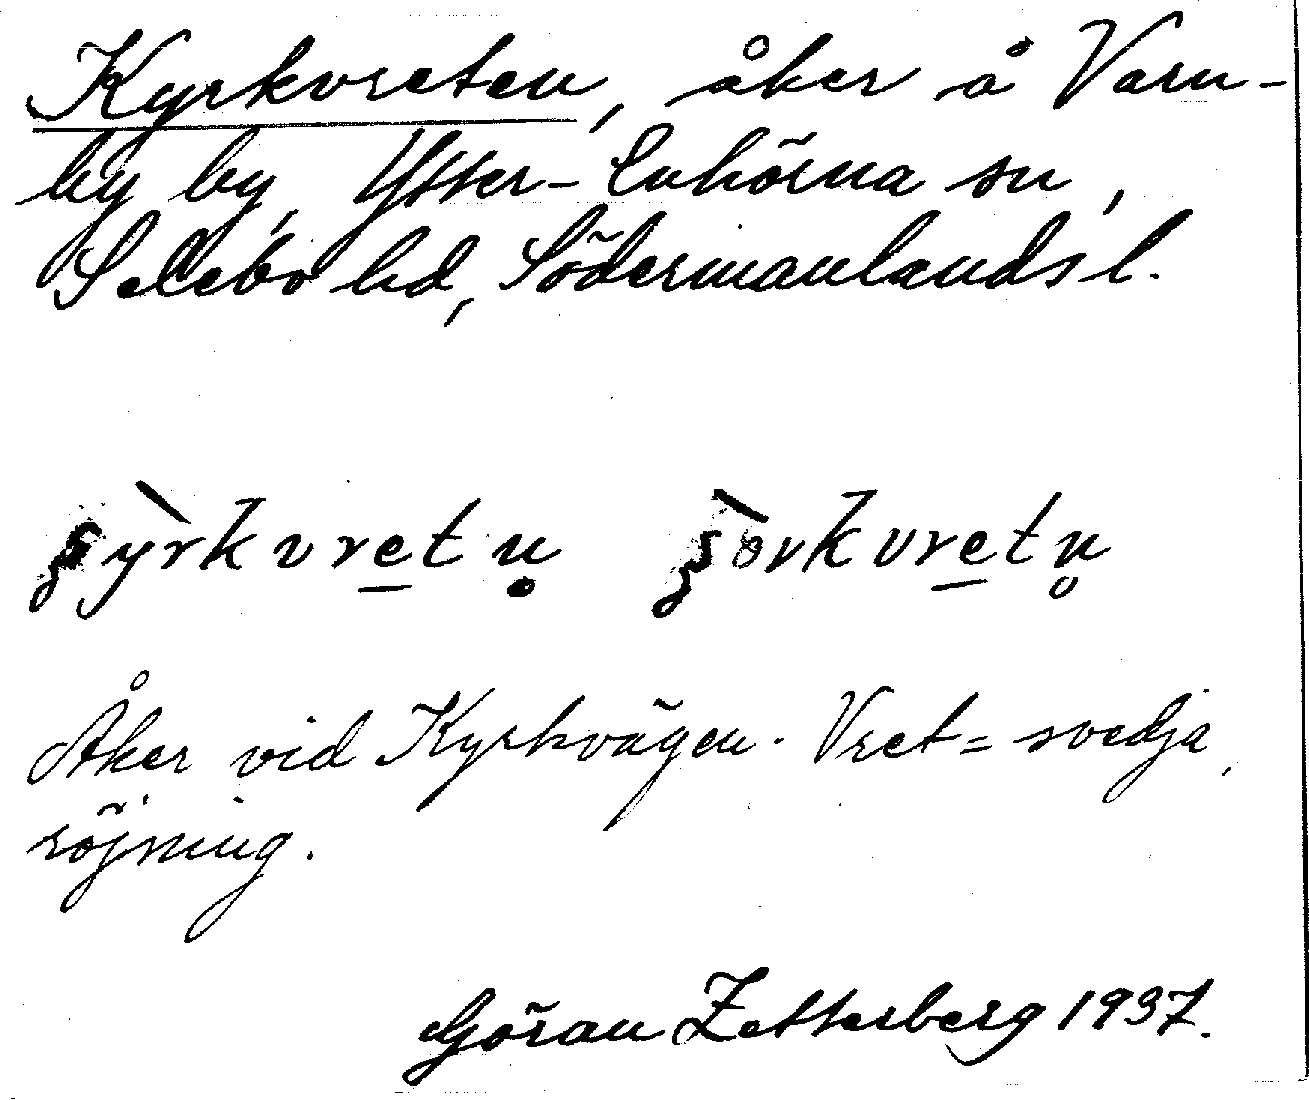 Kyrkvreten, åker å Varn-
by by, Ytter-Enhörna sn,
Selebo hd, Södermanlands l.
Åker vid Kyrkvägen. Vret = svedja,
röjning.
Göran Zetterberg 1937.